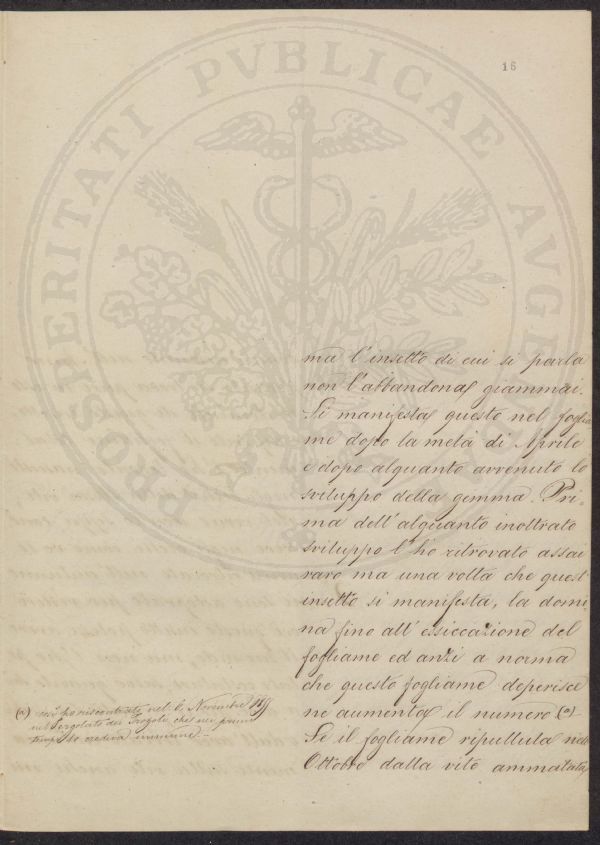 16
PROSPERITATI PVBLICAE AVGE
ma l'insetto di cui si parla
non l'abbandona giammai.
Si manifesta questo nel foglia
me dopo la metà di Aprile
e dopo alquanto avvenuto lo
sviluppo della gemma. Pri-
ma dell'alquanto inoltrato
sviluppo l'ho ritrovato assai
raro ma una volta che quest'
insetto si manifesta, la domi-
na fino all'essiccazione del
fogliame ed anzi a norma
che questo fogliame deperisce
ne aumenta il numero (a)
Se il fogliame ripullula nell'
Ottobre dalla vite ammalata,
(a) ho riscontrato nel 6. Novembre
nel Pergolato che nei primi
tempi lo credeva immune.